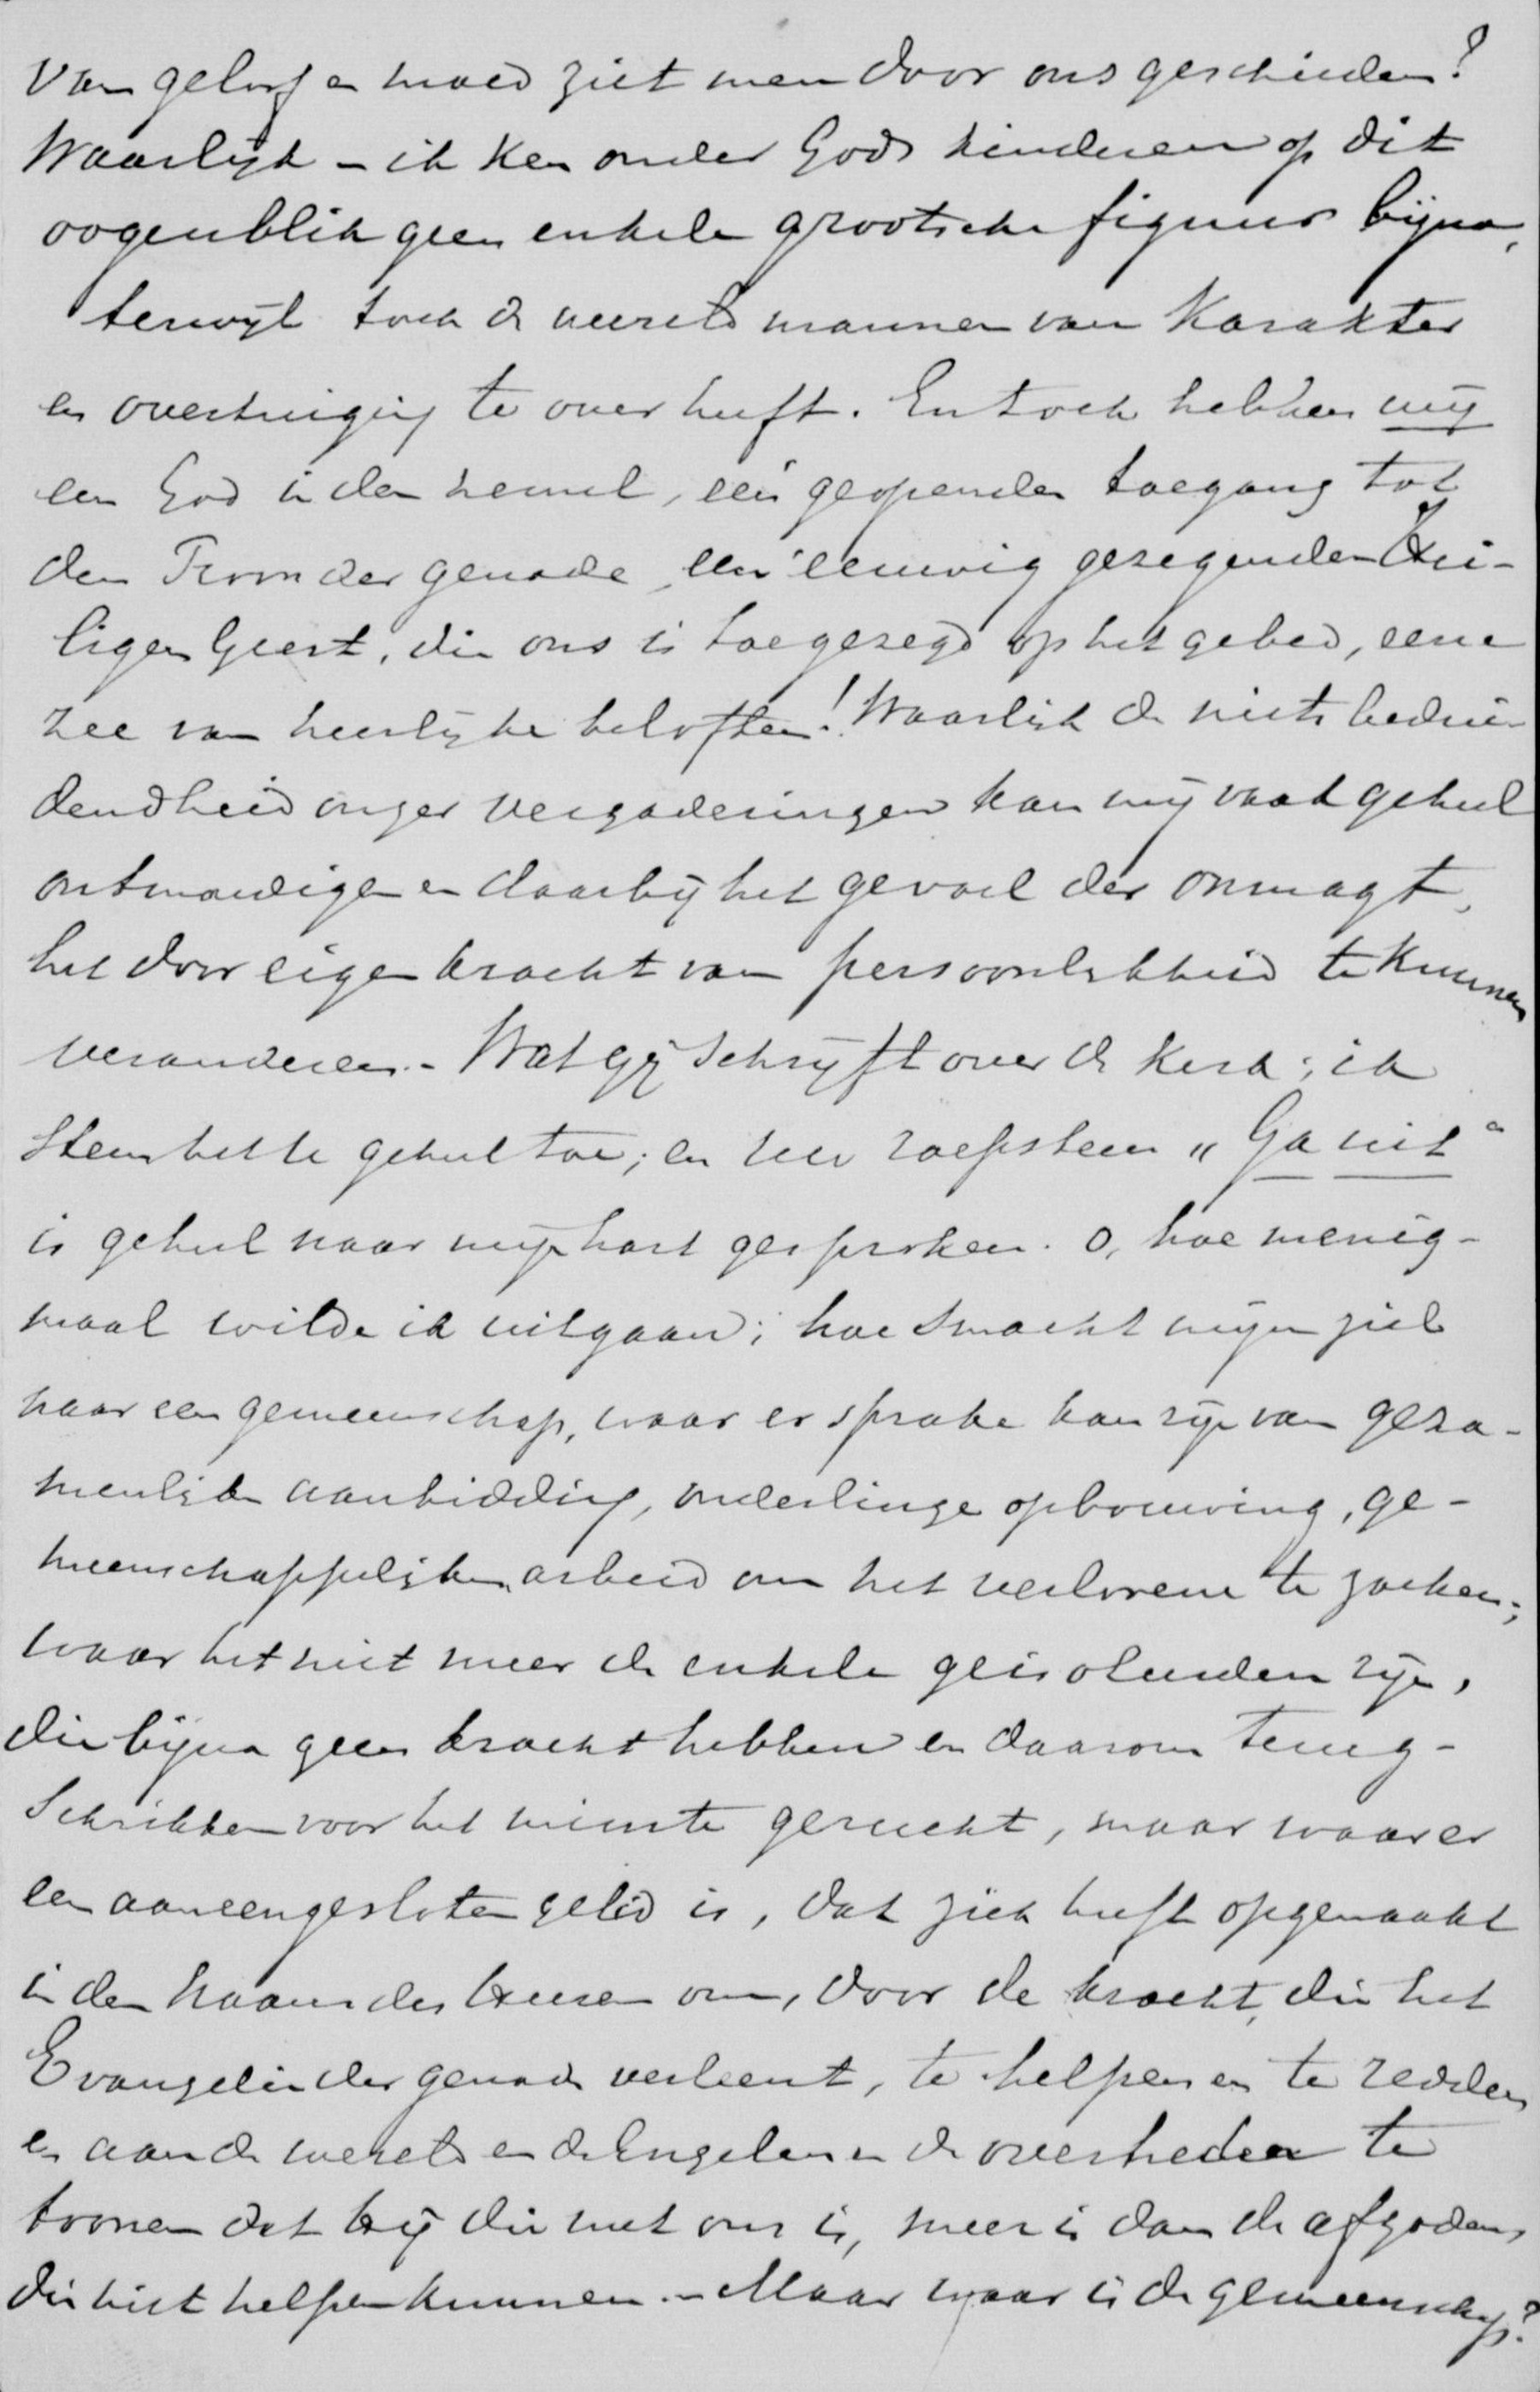 van geloof en moed ziet men door ons geschieden?
Waarlijk – ik ken onder Gods kinderen op dit
oogenblik geen enkele grootsche figuur bijna,
terwijl toch de wereld mannen van karakter
en overtuiging te over heeft. En toch hebben wij
een God in den hemel, een geopenden toegang tot
den Troon der genade, een eeuwig gezegenden Hei-
ligen Geest, die ons is toegezegd op het gebed, eene
zee van heerlijke beloften! Waarlijk de niets bedui-
dendheid onzer vergaderingen kan mij vaak geheel
ontmoedigen en daarbij het gevoel der onmagt,
het door eigen kracht van persoonlijkheid te kunnen
veranderen. – Wat gij schrijft over de Kerk; ik
stem het te geheel toe; en uw roepstem „Ga uit“
is geheel naar mijn hart gesproken. O, hoe menig-
maal wilde ik uitgaan; hoe smacht mijn ziel
naar een gemeenschap, waar er sprake kan zijn van geza-
menlijke aanbidding, onderlinge opbouwing, ge-
meenschappelijken arbeid om het verlorene te zoeken;
waar het niet meer de enkele geisoleerden zijn,
die bijna geen kracht hebben en daarom terug-
schrikken voor het minste gerucht, maar waar er
een aaneengesloten gelid is, dat zich heeft opgemaakt
in den naam des Heeren om, door de kracht, die het
Evangelie der genade verleent, te helpen en te redden
en aan de wereld en de Engelen en de overheden te
toonen dat Hij die met ons is, meer is dan de afgoden,
die niet helpen kunnen. – Maar waar is de gemeenschap?